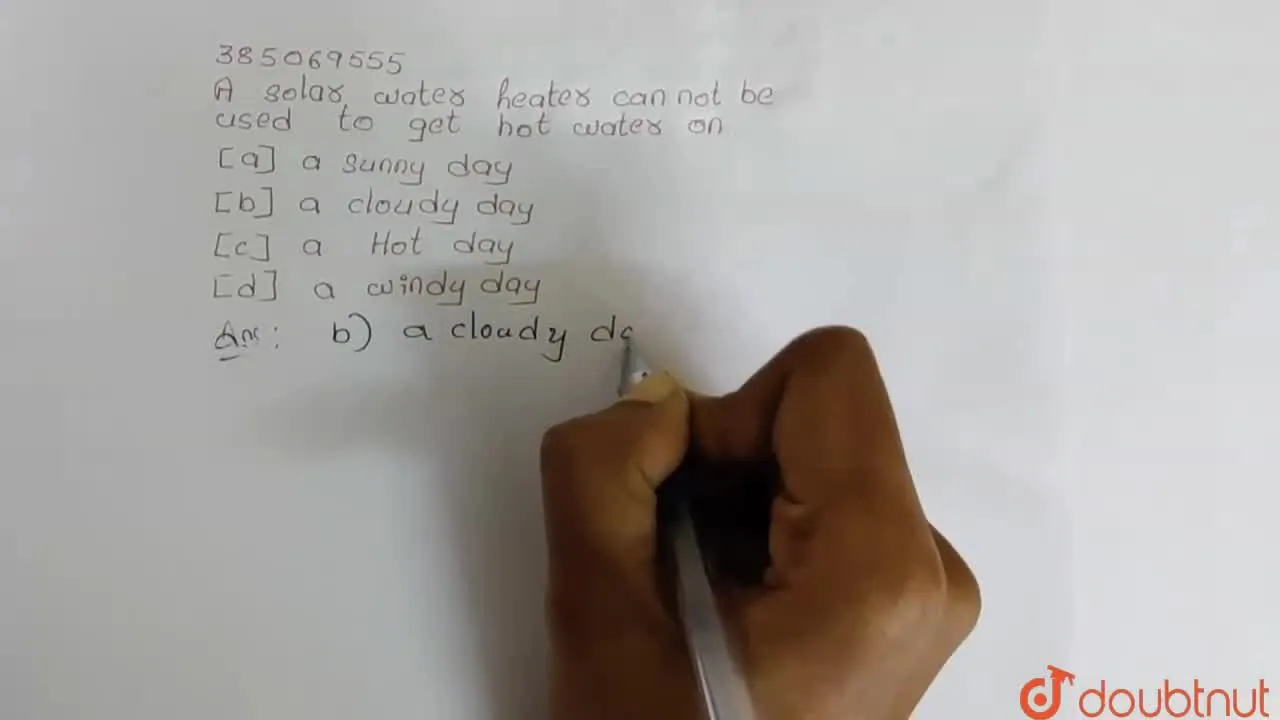 385069555
A solar water heater can not be
used to get hot water on
[a] a sunny day
[b] a cloudy day
[c] a Hot day
[d] a windy day
Ans: b) a cloudy da
doubtnut